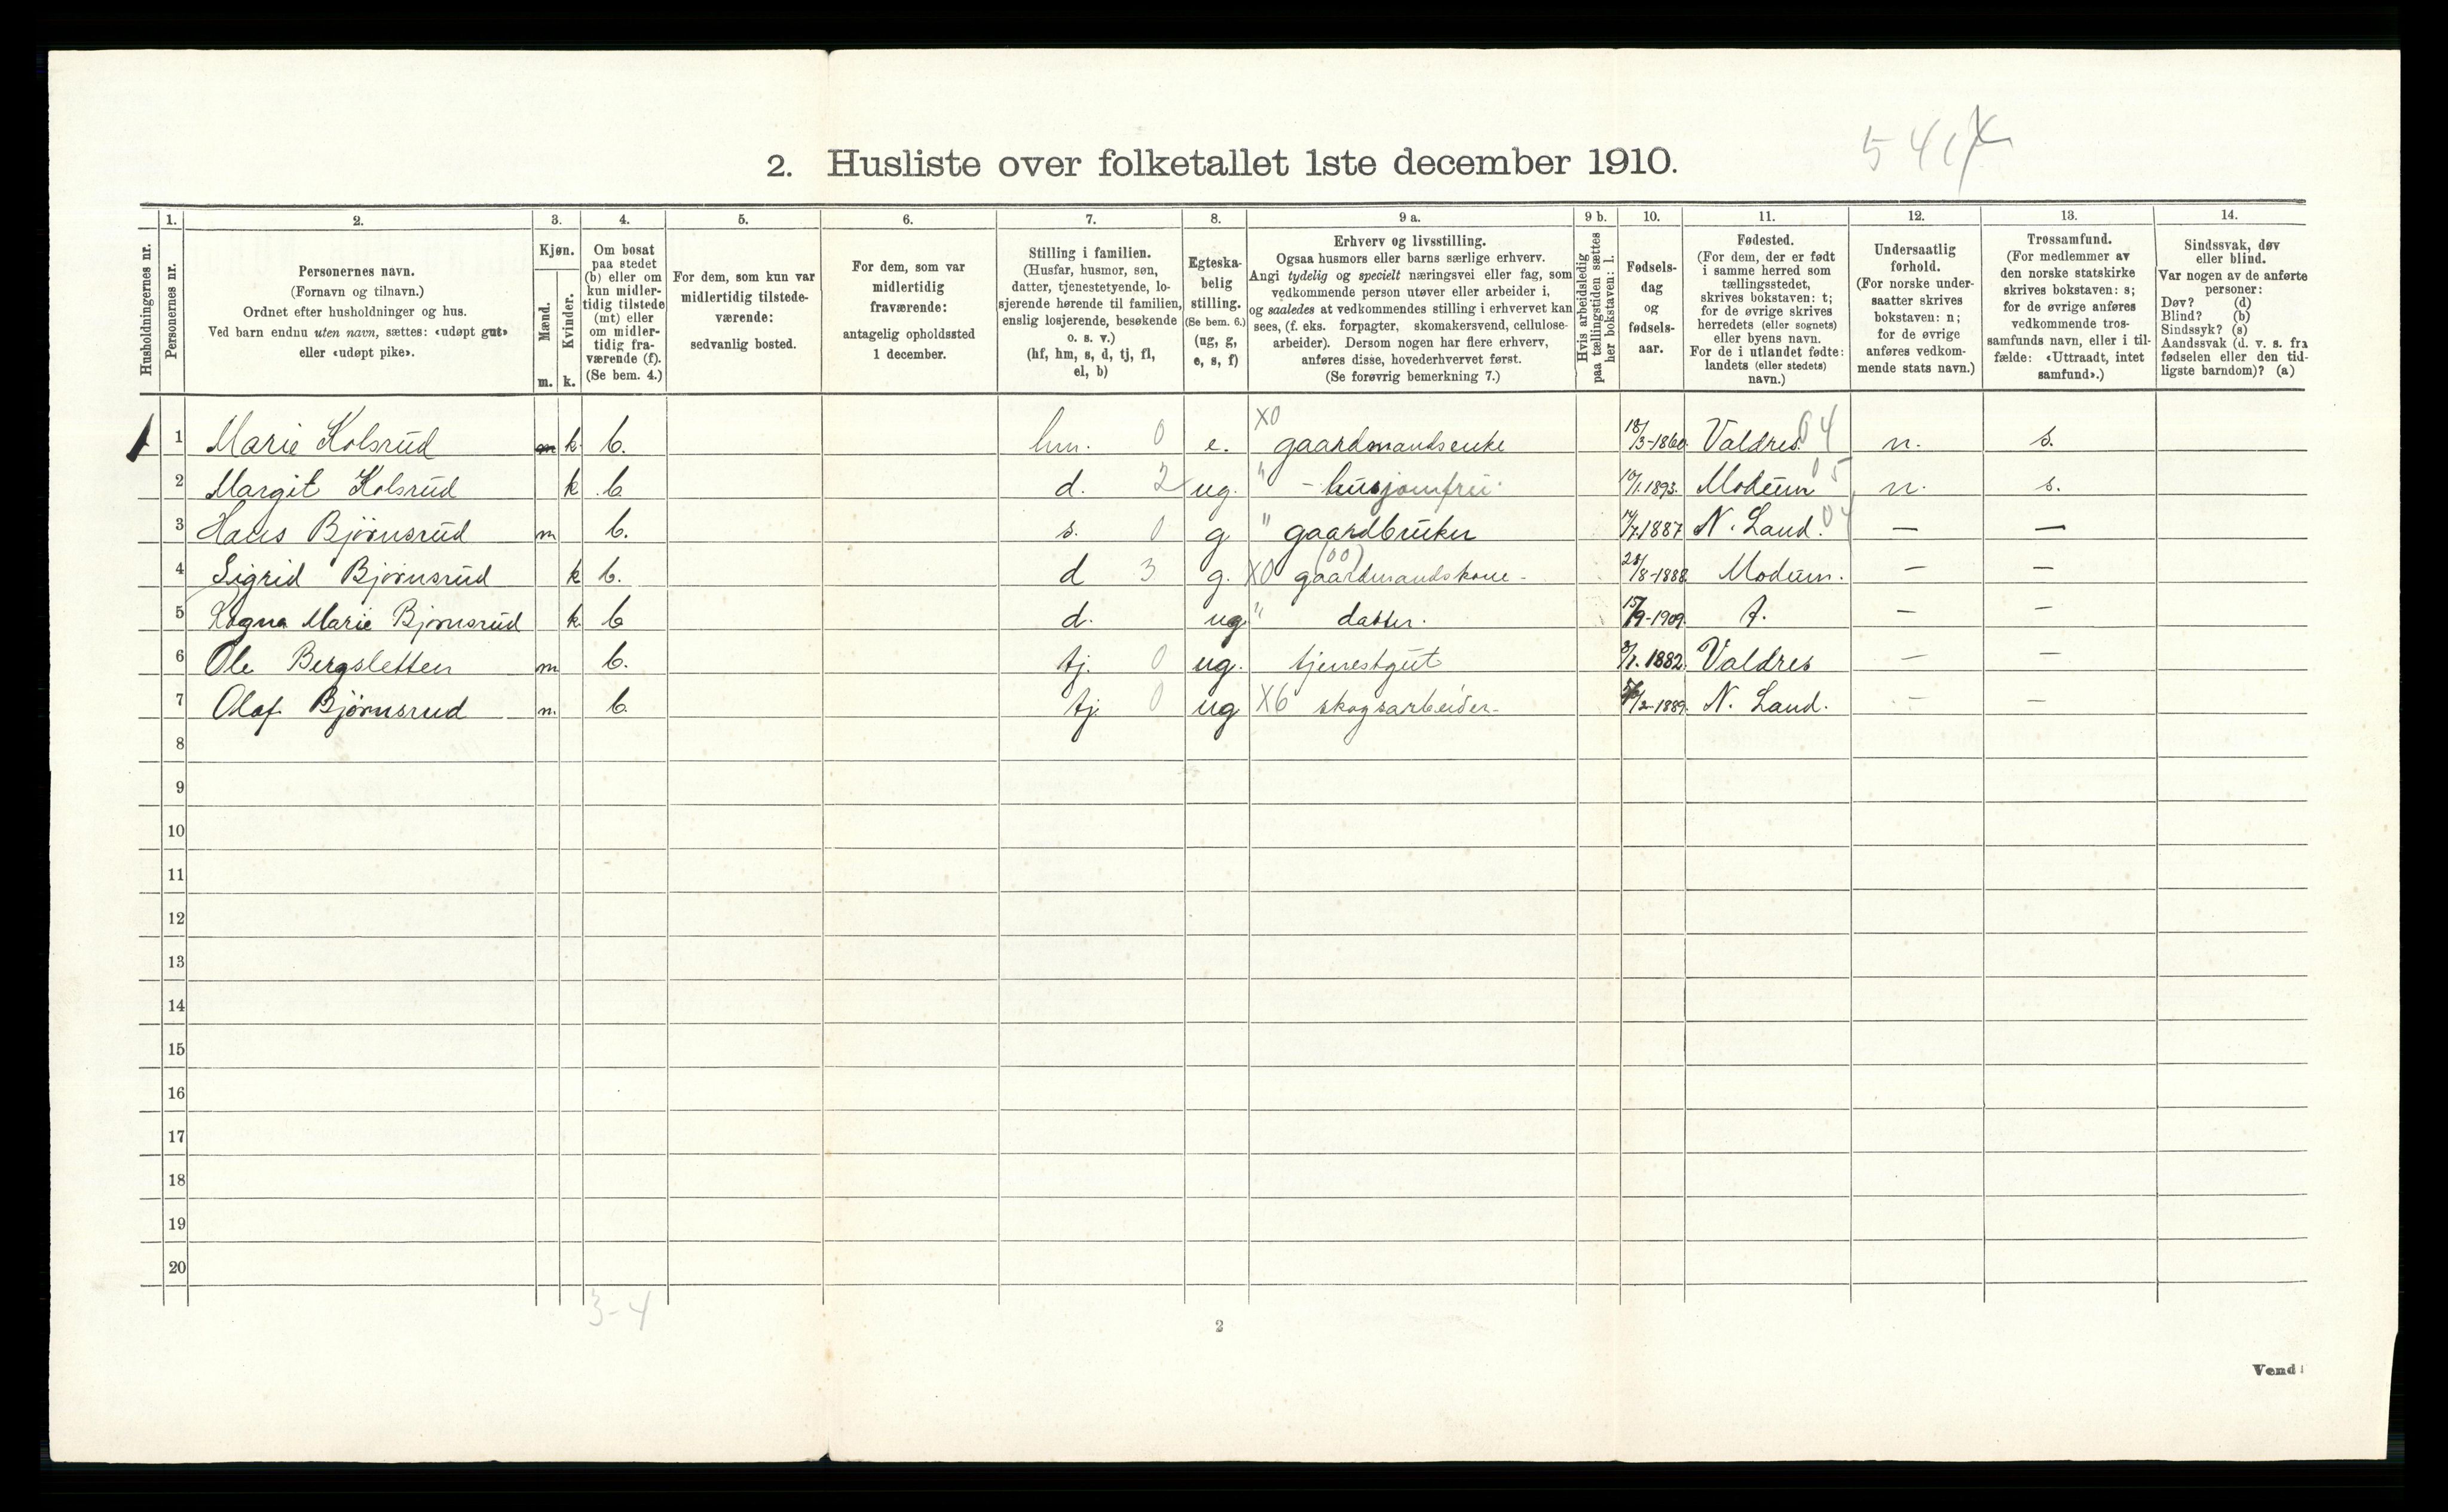 5417
2. Husliste over folketallet 1ste december 1910.
1. 2. 3. 4. 5. 6. 7. 8. 9 a. 9 b. 10. 11. 12. 13. 14.
Husholdningernes nr.
Personernes nr.
Personernes navn.
(Fornavn og tilnavn.)
Ordnet efter husholdninger og hus.
Ved barn endnu uten navn, sættes: «udøpt gut»
eller «udøpt pike».
Kjøn.
Mænd.
Kvinder.
m. k.
Om bosat
paa stedet
(b) eller om
kun midler-
tidig tilstede
(mt) eller
om midler-
tidig fra-
værende (f).
(Se bem. 4.)
For dem, som kun var
midlertidig tilstede-
værende:
sedvanlig bosted.
For dem, som var
midlertidig
fraværende:
antagelig opholdssted
1 december.
Stilling i familien.
(Husfar, husmor, søn,
datter, tjenestetyende, lo-
sjerende hørende til familien,
enslig losjerende, besøkende
o. s. v.)
(hf, hm, s, d, tj, fl,
el, b)
Egteska-
belig
stilling.
(Se bem. 6.)
(ug, g,
e, s, f)
Erhverv og livsstilling.
Ogsaa husmors eller barns særlige erhverv.
Angi tydelig og specielt næringsvei eller fag, som
vedkommende person utøver eller arbeider i,
og saaledes at vedkommendes stilling i erhvervet kan
sees, (f. eks. forpagter, skomakersvend, cellulose-
arbeider). Dersom nogen har flere erhverv,
anføres disse, hovederhvervet først.
(Se forøvrig bemerkning 7.)
Hvis arbeidsledig
paa tællingstiden sættes
her bokstaven: l.
Fødsels-
dag
og
fødsels-
aar.
Fødested.
(For dem, der er født
i samme herred som
tællingsstedet,
skrives bokstaven: t;
for de øvrige skrives
herredets (eller sognets)
eller byens navn.
For de i utlandet fødte:
landets (eller stedets)
navn.)
Undersaatlig
forhold.
(For norske under-
saatter skrives
bokstaven: n;
for de øvrige
anføres vedkom-
mende stats navn.)
Trossamfund.
(For medlemmer av
den norske statskirke
skrives bokstaven: s;
for de øvrige anføres
vedkommende tros-
samfunds navn, eller i til-
fælde: «Uttraadt, intet
samfund».)
Sindssvak, døv
eller blind.
Var nogen av de anførte
personer:
Døv? (d)
Blind? (b)
Sindssyk? (s)
Aandssvak (d. v. s. fra
fødselen eller den tid-
ligste barndom)? (a)
1 1 Marie Kolsrud k b. hm. 0 e. X0 gaardmandsenke 18/3-1860. Valdres. 04 n. s.
2 Margit Kolsrud k b d. 2 ug. " - husjomfru 10/1.1893. Modum 05 n. s.
3 Hans Bjørnsrud m b. s. 0 g " gaardbruker /7.1887 N. Land. 04 — —
4 Sigrid Bjørnsrud k b. d 3 g. X0 gaardmandskone - (00) 28/8-1888. Modum. — —
5 Marie Bjørnsrud k b d. ug " datter. 15/9-1909. t. — —
6 Ole Bergsletten m b. tj. 0 ug. tjenestgut /7. 1882. Valdres — —
7 Olaf Bjørnsrud m. b. tj. 0 ug X6 skogsarbeider- /2-1889. N. Land. — —
8
9
10
11
12
13
14
15
16
17
18
19
20
3-4
2
Vend!